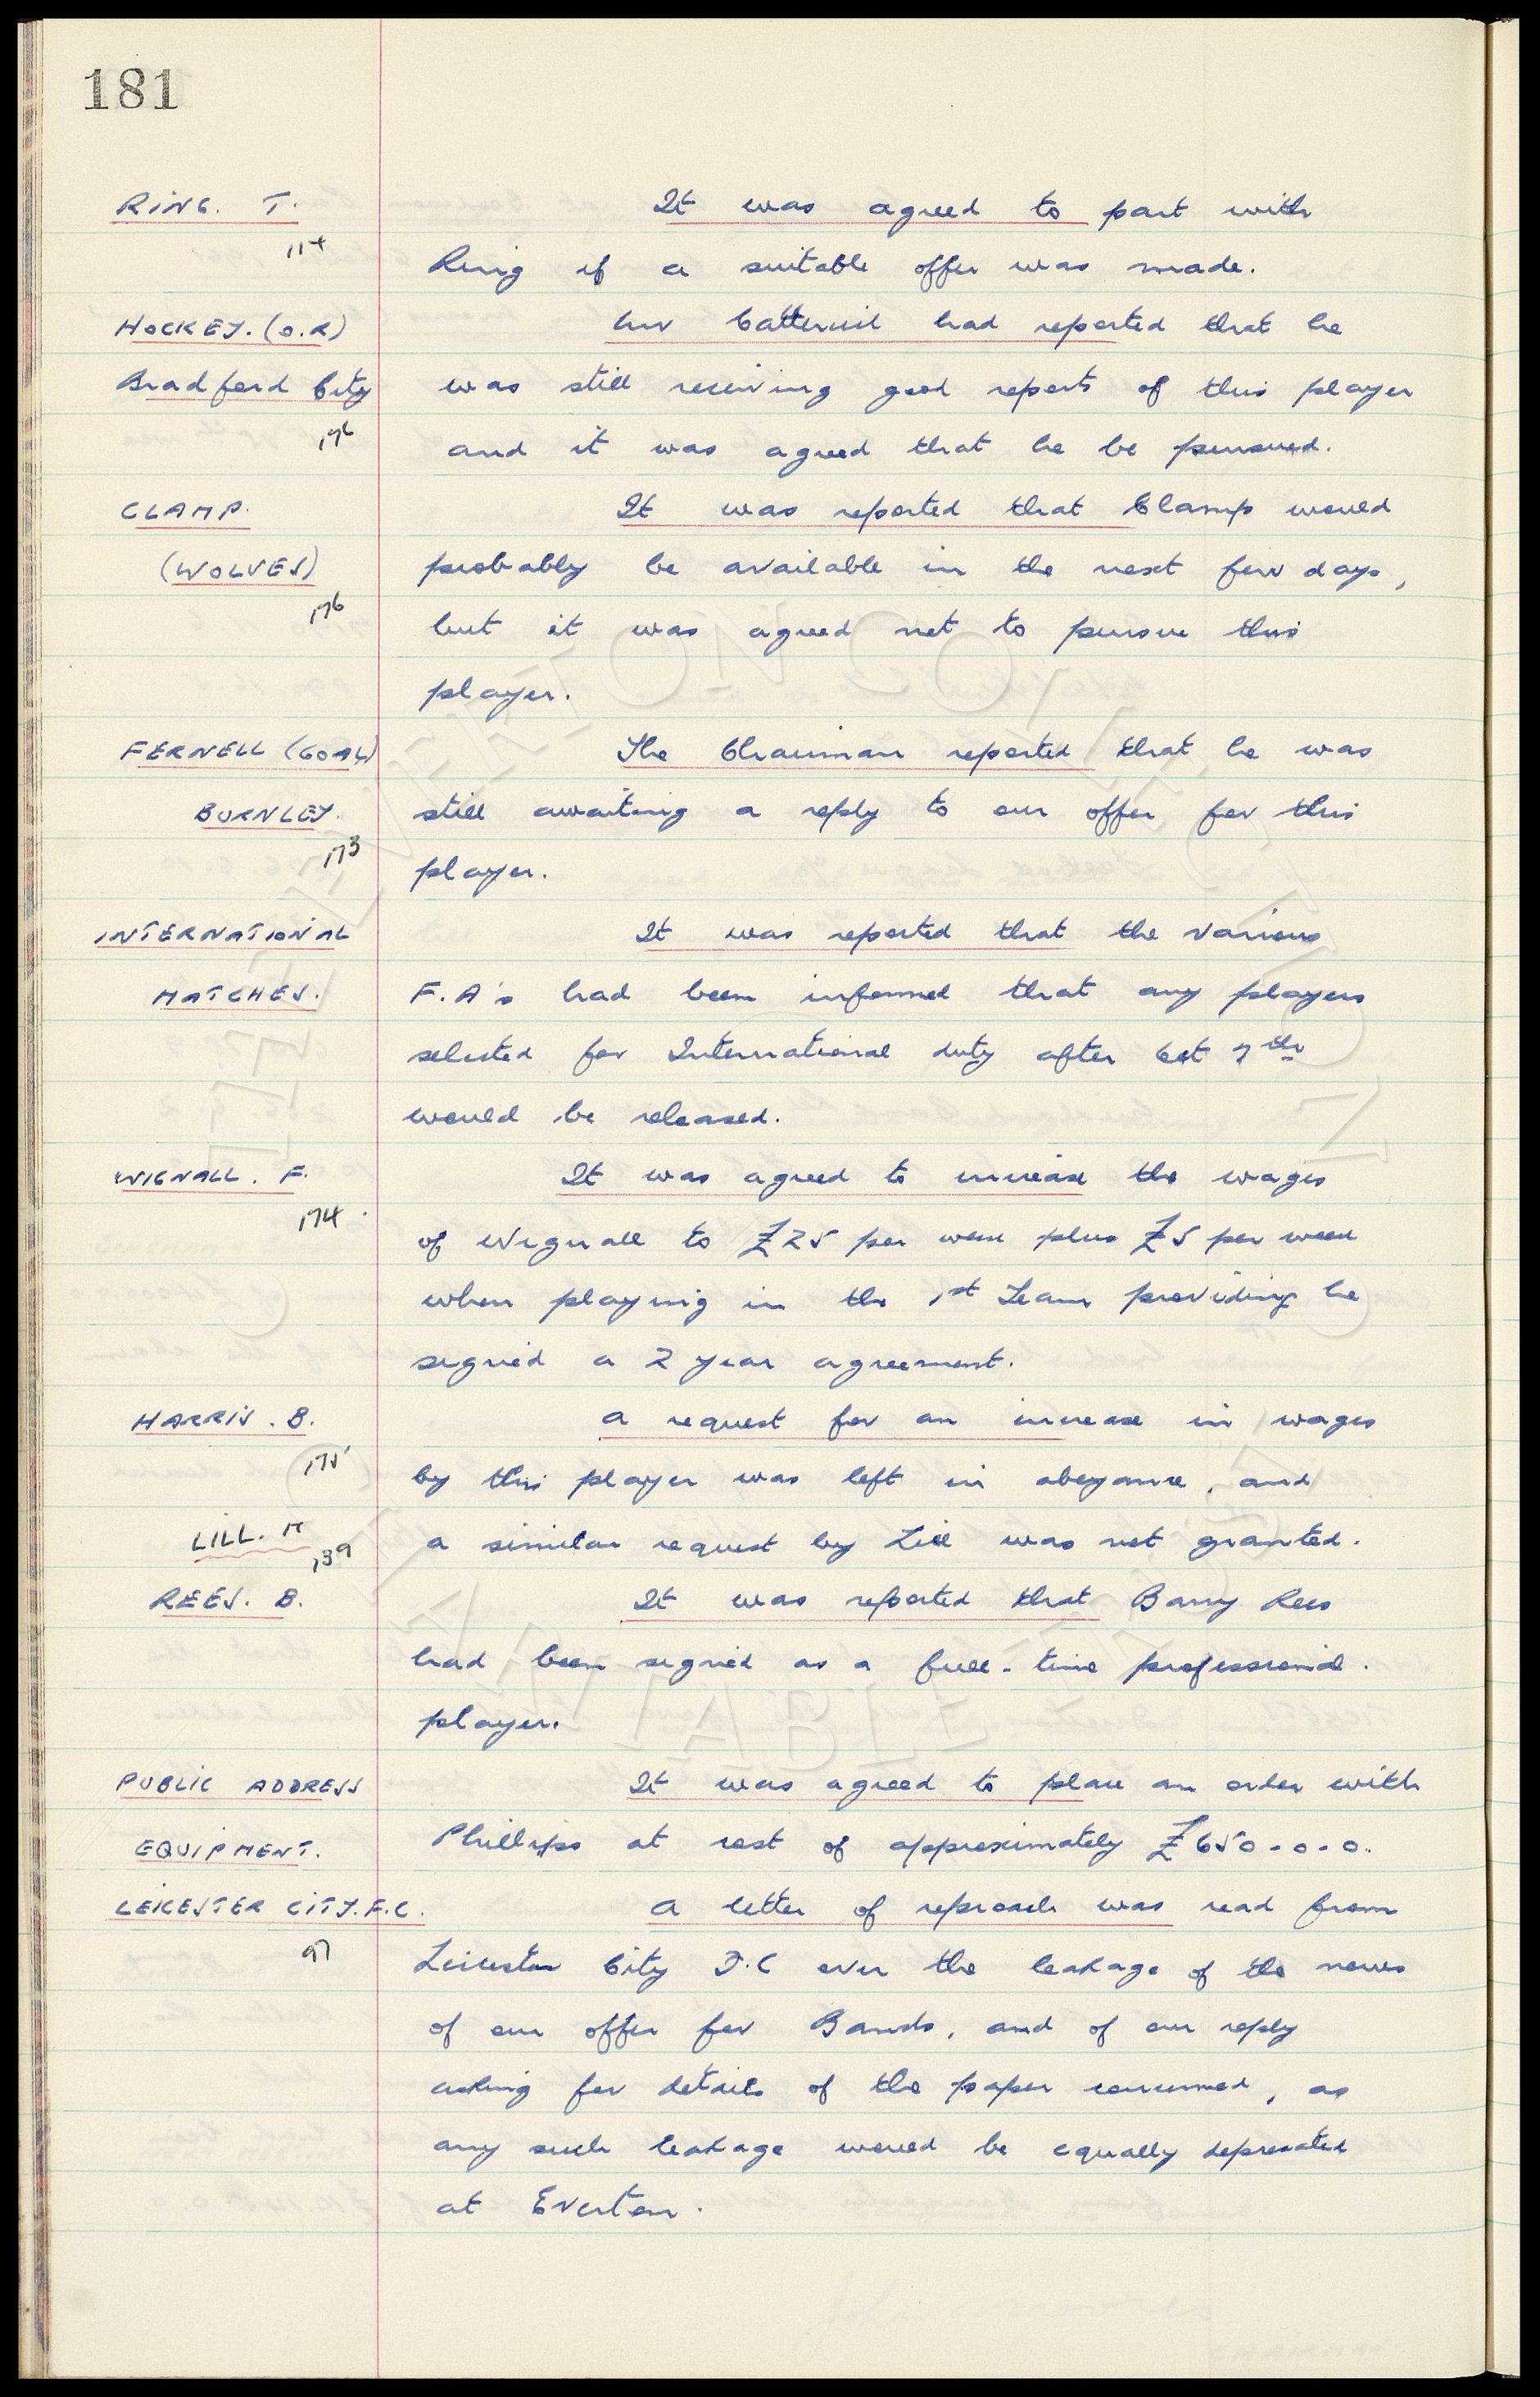 181
RING. T. It was agreed to part with
114
Ring if a suitable offer was made.
HOCKEY. (O.R) Mr Catterick had reported that he
Bradford City was still receiving good reports of this player
176 and it was agreed that he be pursued.
CLAMP. It was reported that Clamp would
(WOLVES) probably be available in the next few days,
176 but it was agreed not to pursue this
player.
FERNELL (GOAL) The Chairman reported that he was
BURNLEY. still awaiting a reply to our offer for this
173 player.
INTERNATIONAL It was reported that the various
MATCHES. F.A's had been informed that any players
selected for International duty after Oct 7th
would be released.
WIGNALL. F. It was agreed to increase the wages
174 of Wignall to £25 per week plus £5 per week
when playing in the 1st Team providing he
signed a 2 year agreement.
HARRIS. B. A request for an increase in wages
175 by this player was left in abeyance, and
LILL. M 139 a similar request by Lill was not granted.
REES. B. It was reported that Barry Rees
had been signed as a full-time professional.
player.
PUBLIC ADDRESS It was agreed to place an order with
EQUIPMENT. Phillips at cost of approximately £650-0-0.
LEICESTER CITY. F.C. A letter of reproach was read from
97 Leicester City F.C over the leakage of the news
of our offer for Banks, and of our reply
asking for details of the paper concerned, as
any such leakage would be equally deprecated
at Everton.